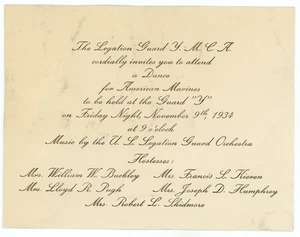 The Legation Guard Y.M.C.A.
cordially invites you to attend
a Dance
for American Marines
to be held at the Guard "Y"
on Friday Night, November 9th 1934
at 9 o'clock
Music by the U.S. Legation Guard Orchestra
Hostesses:
Mrs. William W. Buckley Mrs. Francis L. Kieren
Mrs. Lloyd R. Pugh Mrs. Joseph D. Humphrey
Mrs. Robert L. Skidmore